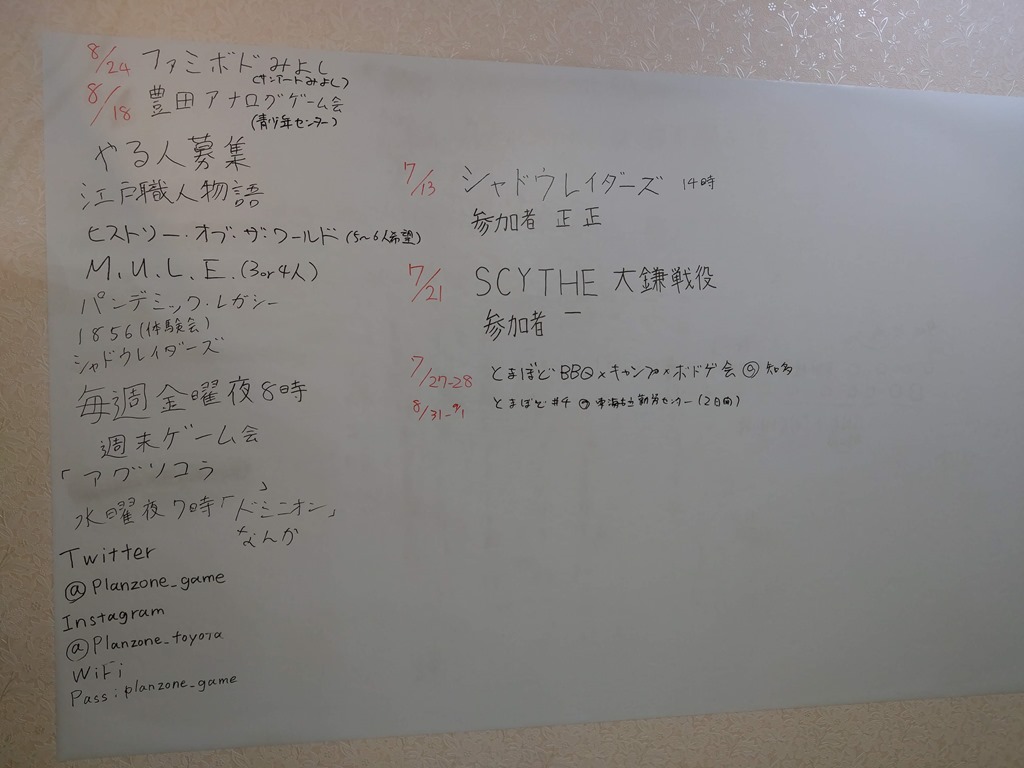 8/24 ファミボドみよし
(サンアートみよし)
8/18 豊田アナログゲーム会
(青少年センター)
やる人募集
江戸職人物語
ヒストリー・オブ・ザ・ワールド(5~6人希望)
M.U.L.E.(3or4人)
パンデミック・レガシー
1856(体験会)
シャドウレイダーズ
毎週金曜夜8時
週末ゲーム会
「アグリコラ」
水曜夜7時「ドミニオン」
なんか
Twitter
@Planzone_game
Instagram
@Planzone_toyota
WiFi
Pass:planzone_game
7/13 シャドウレイダーズ 14時
参加者 正正
7/21 SCYTHE 大鎌戦役
参加者 一
7/27-28 とまぼどBBQ×キャンプ×ボドゲ会@知多
8/31-9/1 とまぼど#4@東海市 勤労センター(2日間)